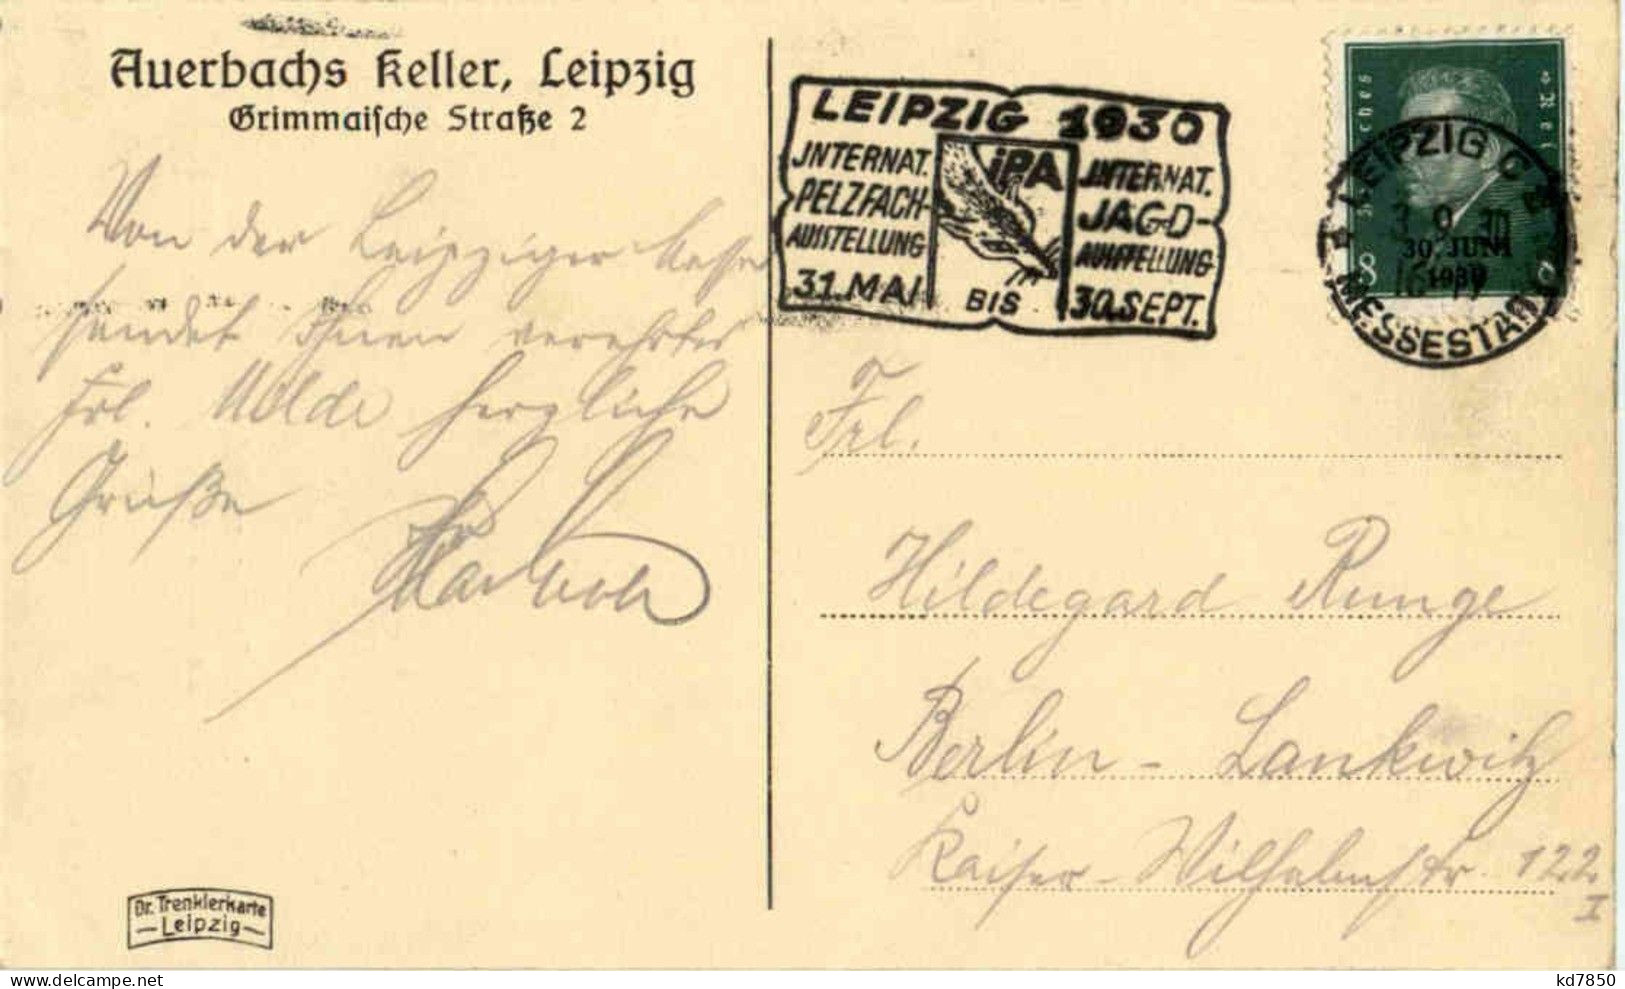 Auerbachs Keller, Leipzig
Grimmaische Straße 2
Von der Leipziger Messe
sendet Ihnen verehrtes
Frl. Milde herzliche
Grüße
Dr. Trenklerkarte
Leipzig
LEIPZIG 1930
INTERNAT. PELZFACH-AUSSTELLUNG
iPA
INTERNAT. JAGD-AUSSTELLUNG
31. MAI BIS 30. SEPT.
LEIPZIG C2
3.9.30
MESSESTADT
30. JUNI
1930
8
Frl.
Hildegard Runge
Berlin-Lankwitz
Kaiser-Wilhelmstr 122
I
kd7850